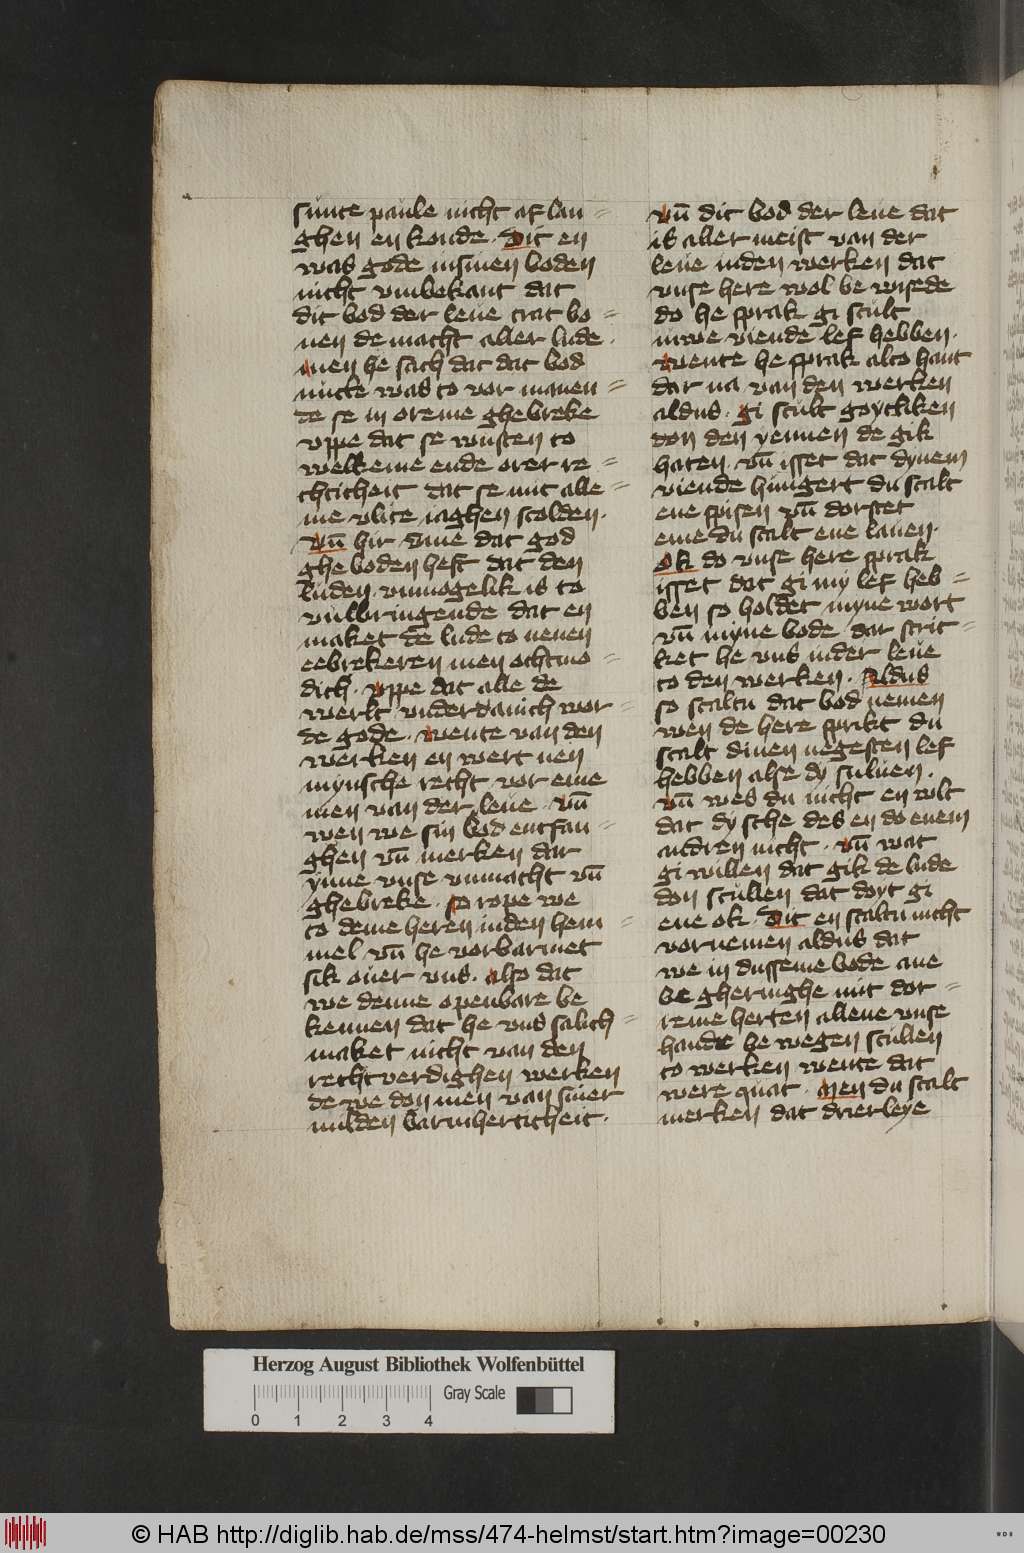 sunte paule nicht af lan=
ghen en konde. Dit en
was gode insinen boden
nicht vmbekant dat
dit bod der leue trat bo=
uen de macht aller lude.
men he sach dat dat bod
nutte was to vor manen=
de se in oreme ghebreke
vppe dat se wusten to
welkeme ende orer re=
chticheit dat se mit alle=
me vlite iaghen scolden.
vn̄ hir vmme dat god
ghe boden heft dat den
luden vnmogelik is to
vulbringende dat en
maket de lude to nenen
eebrekeren men othmo=
dich. vppe dat alle de
werlt vnderdanich wor=
de gode. wente van den
werken en wert nen
mynsche recht vor eme
men van der leue. vn̄
wen we sin bod entfan=
ghen vn̄ merken dar
ynne vnse vnmacht vn̄
ghebreke. so rope we
to deme heren inden hem=
mel vn̄ he vorbarmet
sik ouer vns. also dat
we denne openbare be
kennen dat he vns salich=
maket nicht van den
rechtverdighen werken
de we don men van siner
milden barmherticheit.
vn̄ dit bod der leue dat
is aller meist van der
leue inden werken dat
vnse here wol be wisede
do he sprak gi scult
iuwe viende lef hebben.
wente he sprak alto hant
dar na van den werken
aldus. gi scult goytliken
don den yennen de gik
haten. vn̄ isset dat dynem
viende hungert du scalt
ene spisen vn̄ dorstet
eme du scalt ene lauen.
ok do vnse here sprak
isset dat gi my lef heb=
ben so holdet myne wort
vn̄ myne bode dar stric=
ket he vns inder leue
to den werken. Aldus
so scaltu dat bod nemen
wen de here sprikt du
scalt dinen negesten lef
hebben alse dy suluen.
vn̄ wes du nicht en wlt
dat dy sche des en do enem
andren nicht. vn̄ wat
gi willen dat gik de lude
don scullen dat doyt gi
ene ok. Dit en scaltu nicht
vornemen aldus dat
we in dusseme bode ane
be gheringhe mit dor=
reme herten allene vnse
hande be wegen scullen
to werken wente dat
were quat. Men du scalt
merken dat drierleye
Herzog August Bibliothek Wolfenbüttel
Gray Scale
0 1 2 3 4
© HAB http://diglib.hab.de/mss/474-helmst/start.htm?image=00230